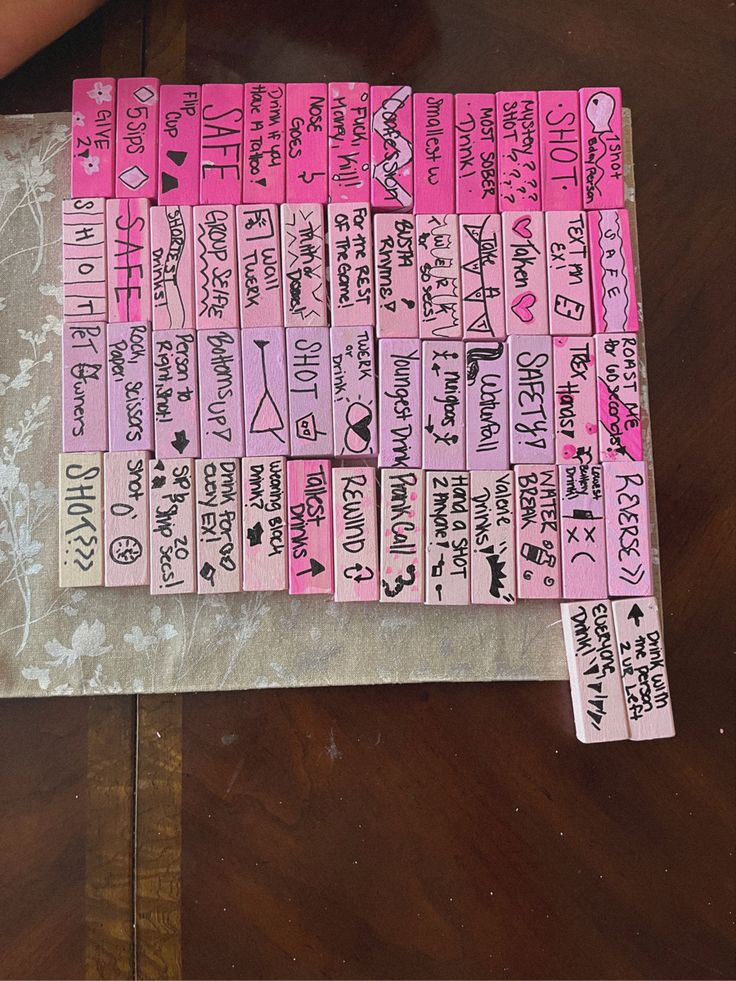 GIVE
2
5 Sips
Flip
Cup
SAFE
Drink if you
Have A Tattoo!
NOSE
GOES
Fuck, Kill!
Marry,
Confession
Smallest
MOST SOBER
Drink!
Mystery????
SHOT ????
SHOT
1 Shot
Bday Person
SHOT
SAFE
SHORTEST
Drinks!
GROUP SELFIE
Wall
TWERK
Truth or
Dare!!
For the REST
OF The Game!
BUSTA
Rhyme
TWERK
for 30 secs!
Take A
Taken
TEXT AN
EX!
SAFE
PET Owners
Rock, Scissors
Paper!
Person to
Right Shot!
Bottoms Up!
SHOT
TWERK
or
Drink!
Youngest Drink
Waterfall
SAFETY
TREX
Hands!
ROAST ME
for 60 Seconds!
SHOT???
Shot O'
Sip & Skip 20
secs!
Drink for
every EX!
Wrong Block
Drink?
Tallest
Drinks
REWIND
Prank Call
Hand a SHOT
2 Anyone!
Valorie
Drinks
WATER
BREAK
Lowest
Battery
Drink!
REVERSE
EVERYONE
Drink!
Drink with
the person
2 UR Left